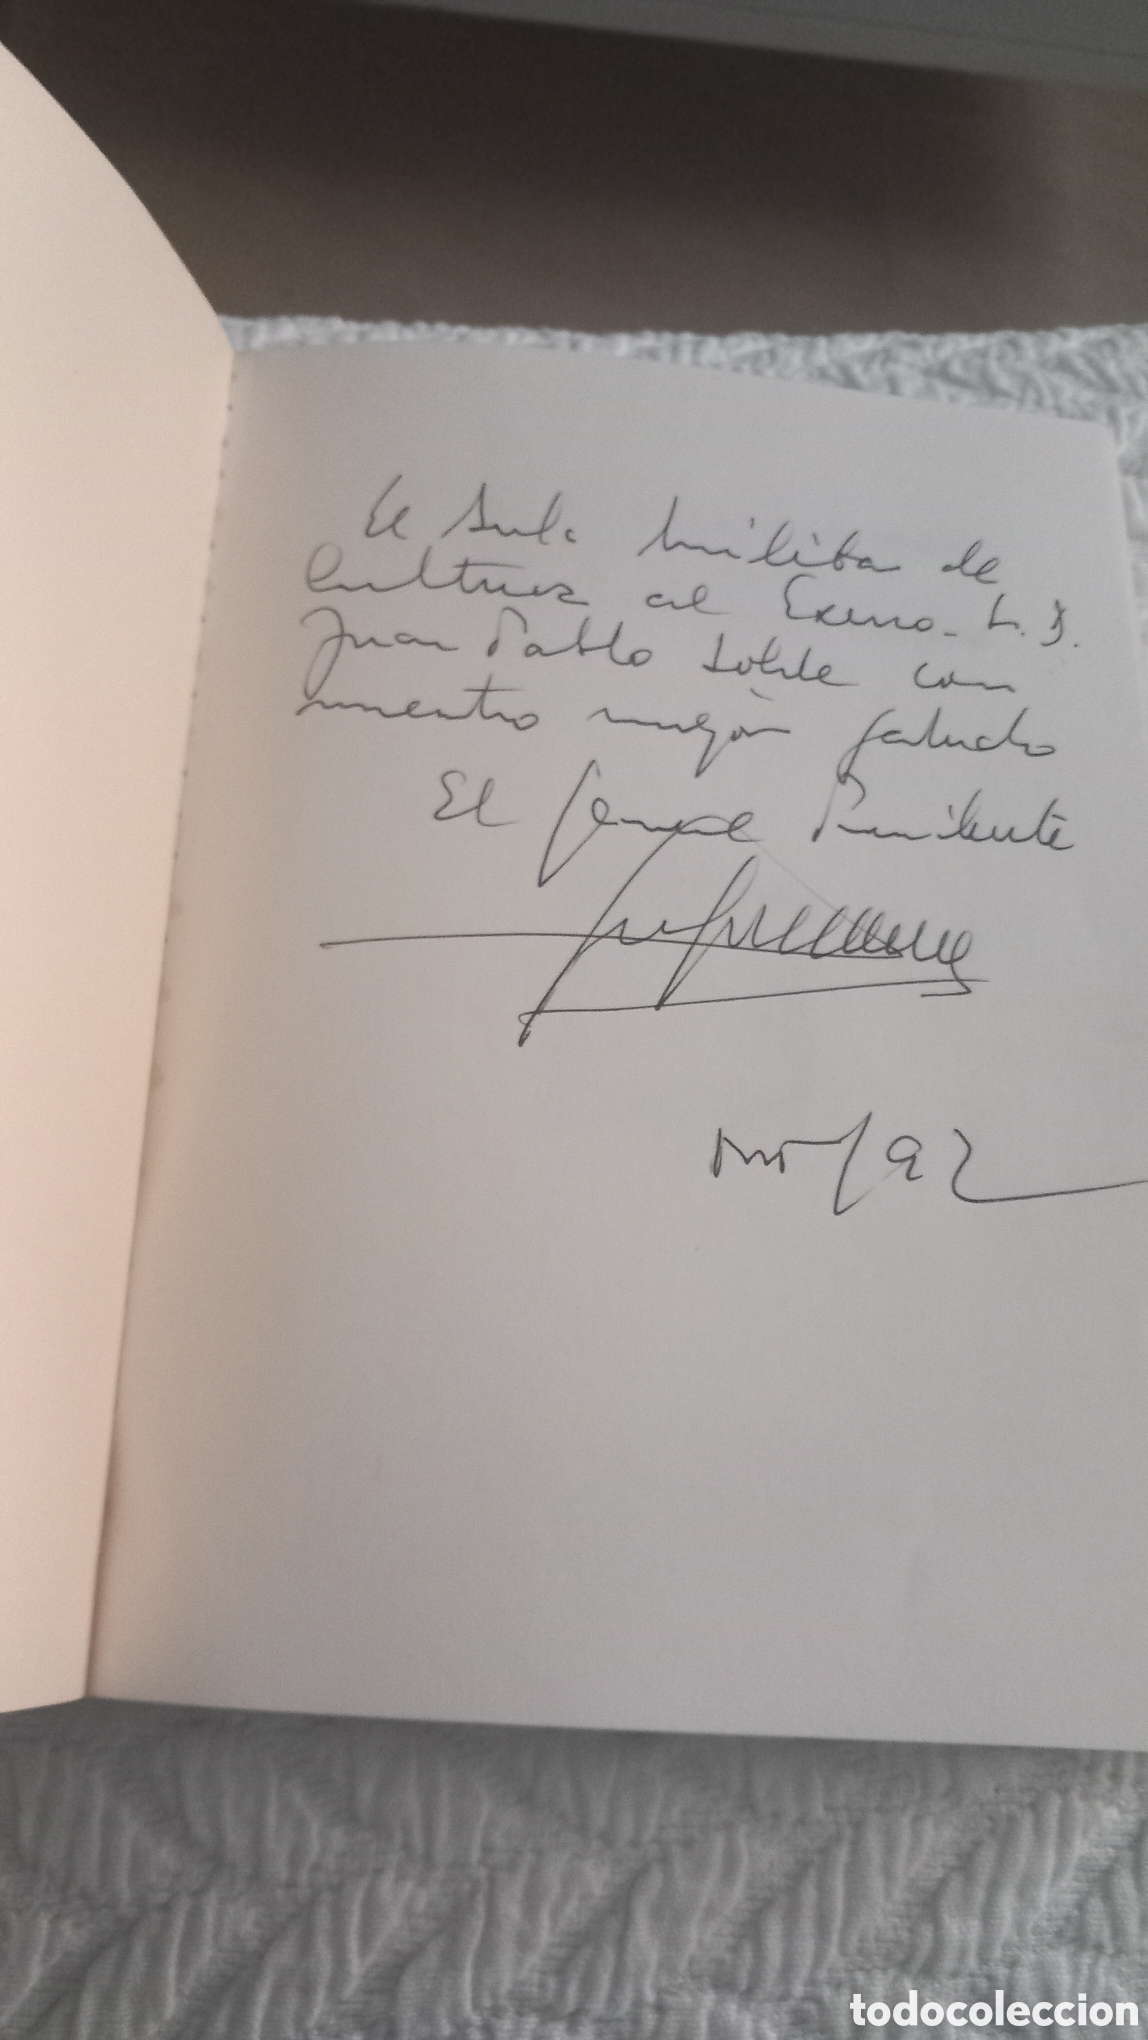 El Aula Militar de
Cultura al Excmo. S. D.
Juan Pablo con
nuestro mejor saludo
El General Presidente
todocoleccion